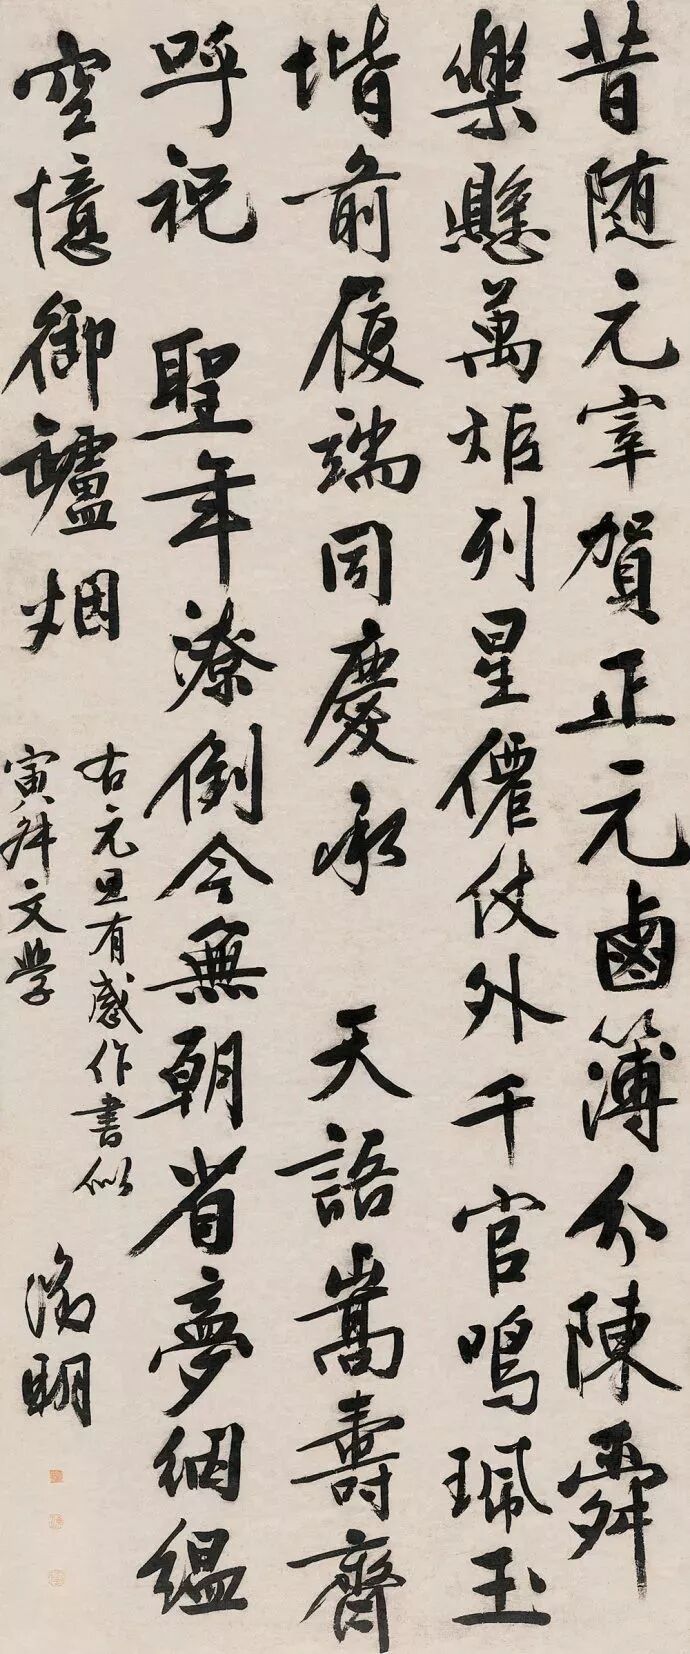 昔随元宰賀正元鹵簿分陳舜
樂懸萬炬列星僊仗外千官鳴珮玉
堦前履端同慶承 天語嵩壽齊
呼祝 聖年潦倒今無朝省夢絪縕
空憶御罏烟
右元旦有感作書似
寅升文學
瀹明